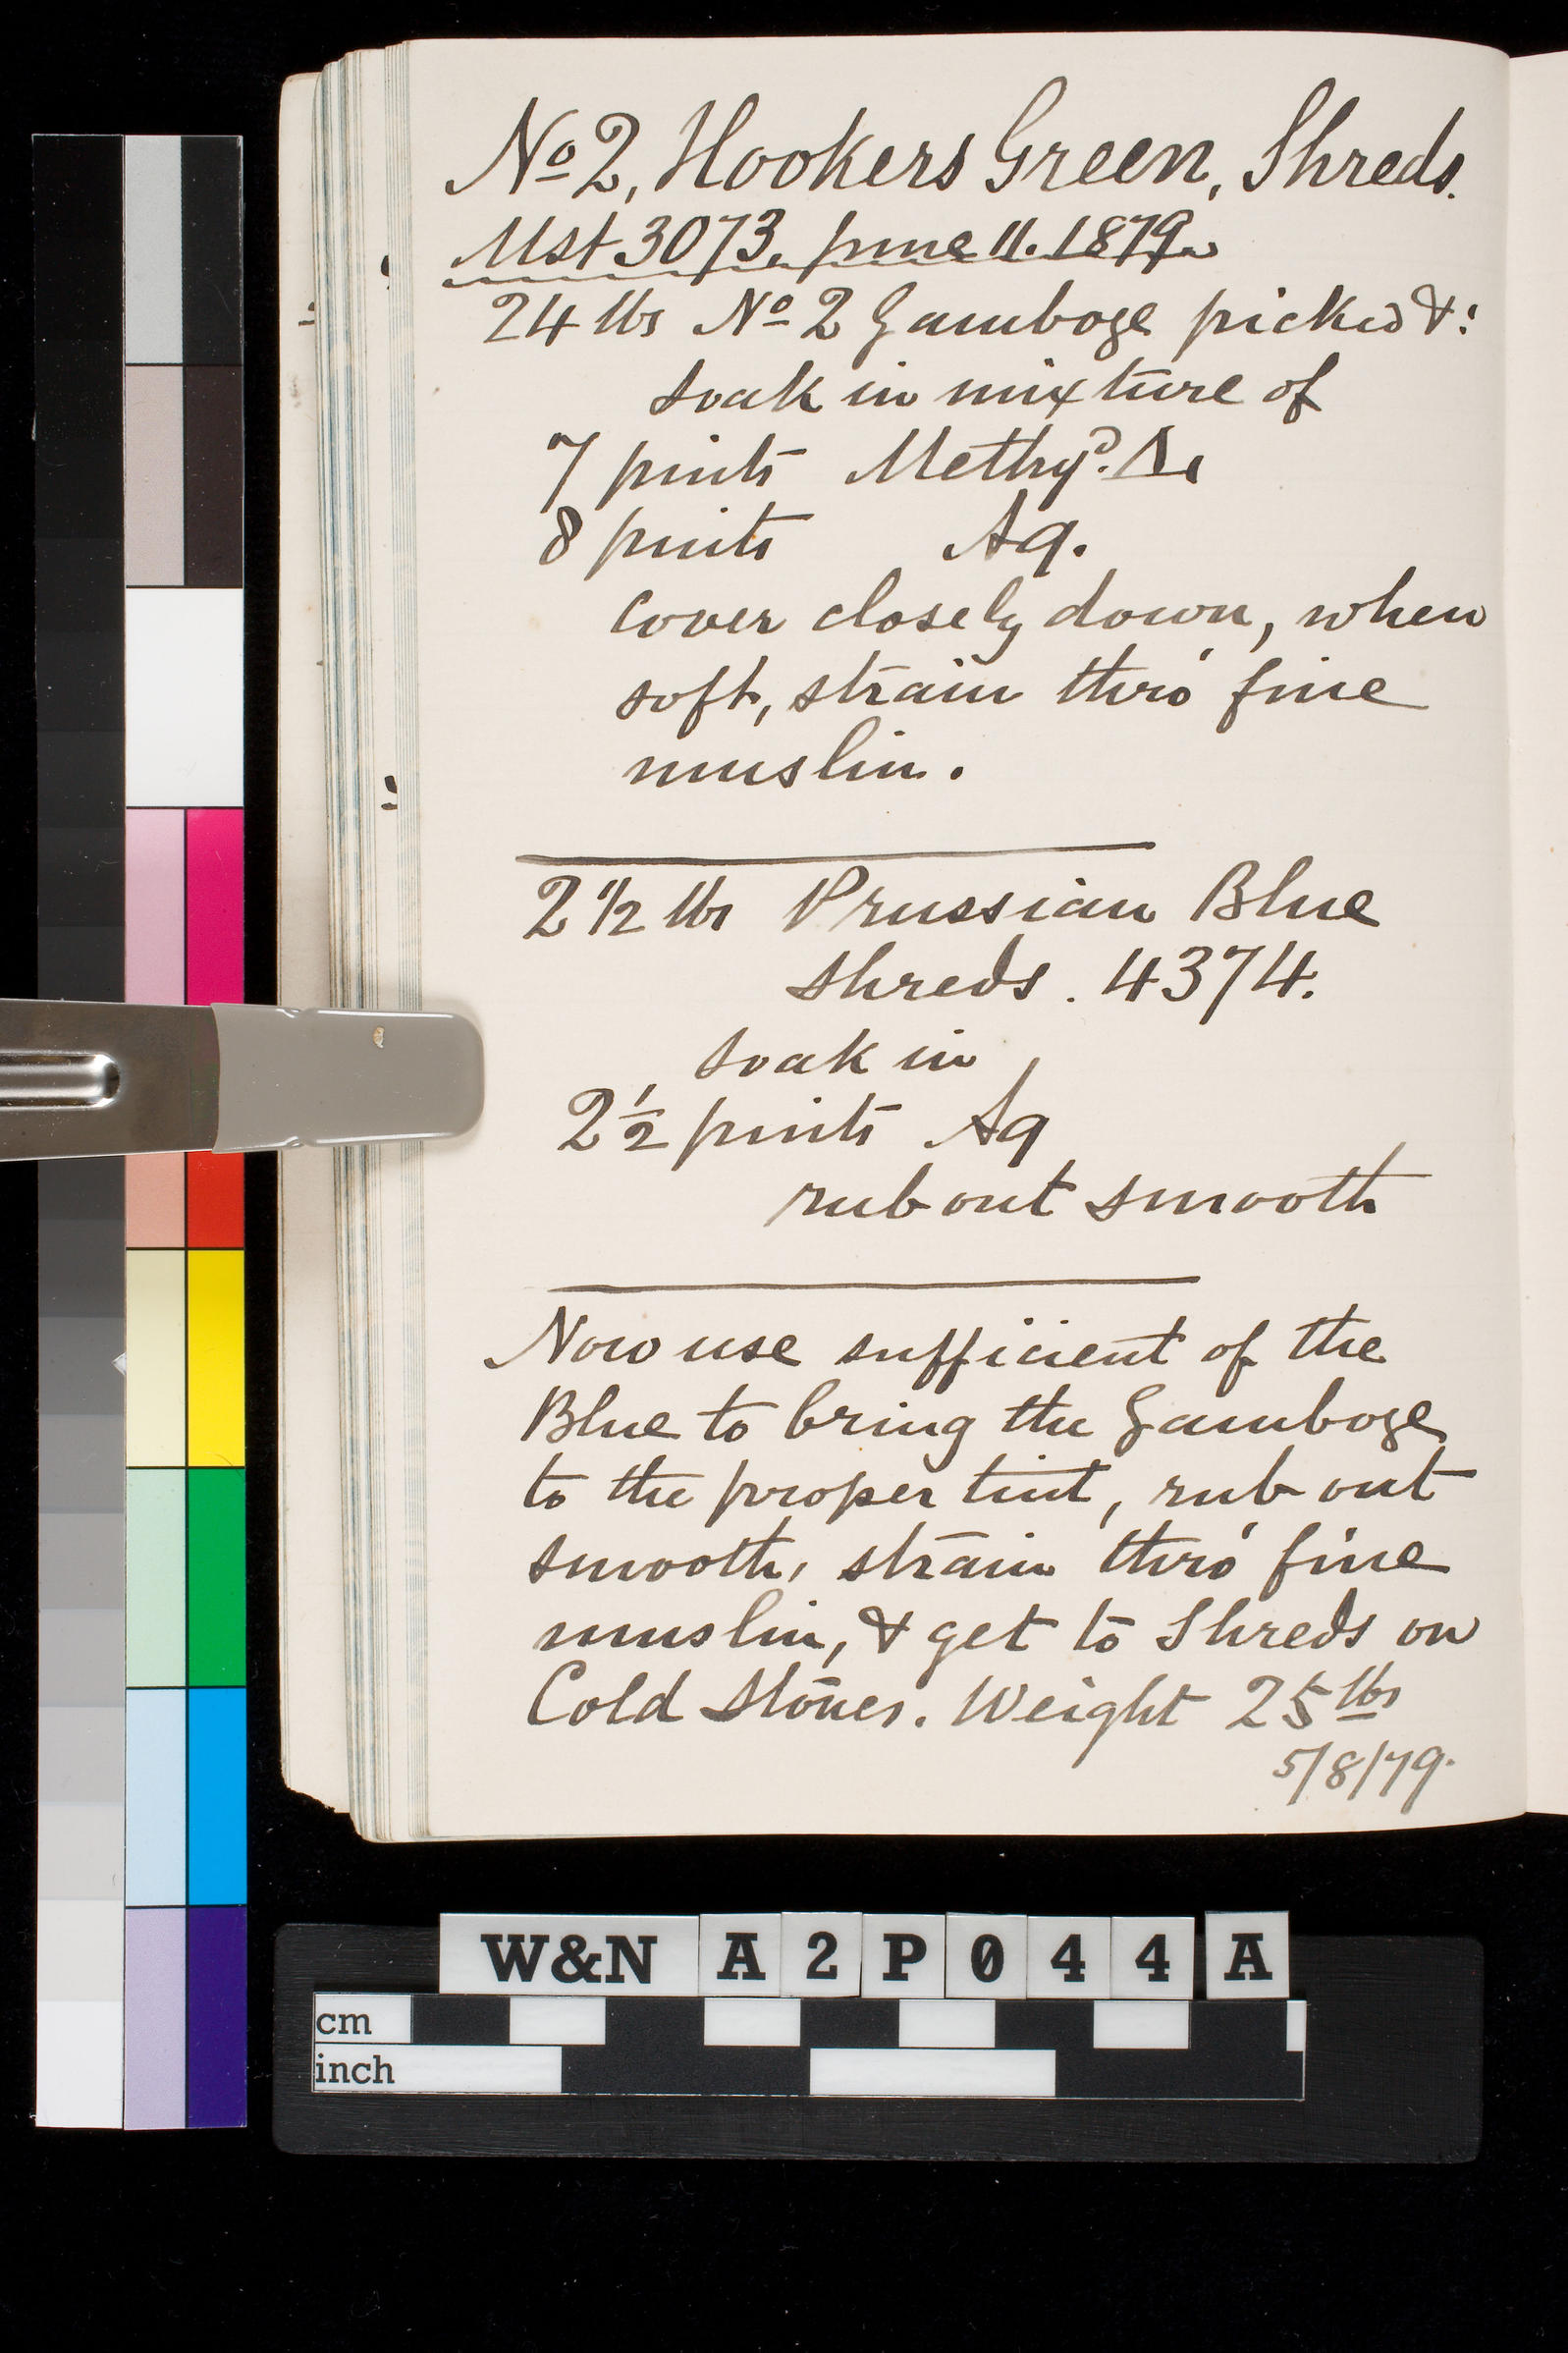 No 2, Hookers Green, Shreds.
Mst 3073. June 11. 1879.
24 lbs No 2 Gamboge picked &:
soak in mixture of
7 pints Methyd. S.
8 pints Aq.
Cover closely down, when
soft, strain thro' fine
muslin.
2 1/2 lbs Prussian Blue
shreds. 4374.
soak in
2 1/2 pints Aq
rub out smooth
Now use sufficient of the
Blue to bring the Gamboge
to the proper tint, rub out
smooth, strain thro' fine
muslin, & get to Shreds on
Cold Stones. Weight 25 lbs
5/8/79.
W&N A2P044A
cm
inch